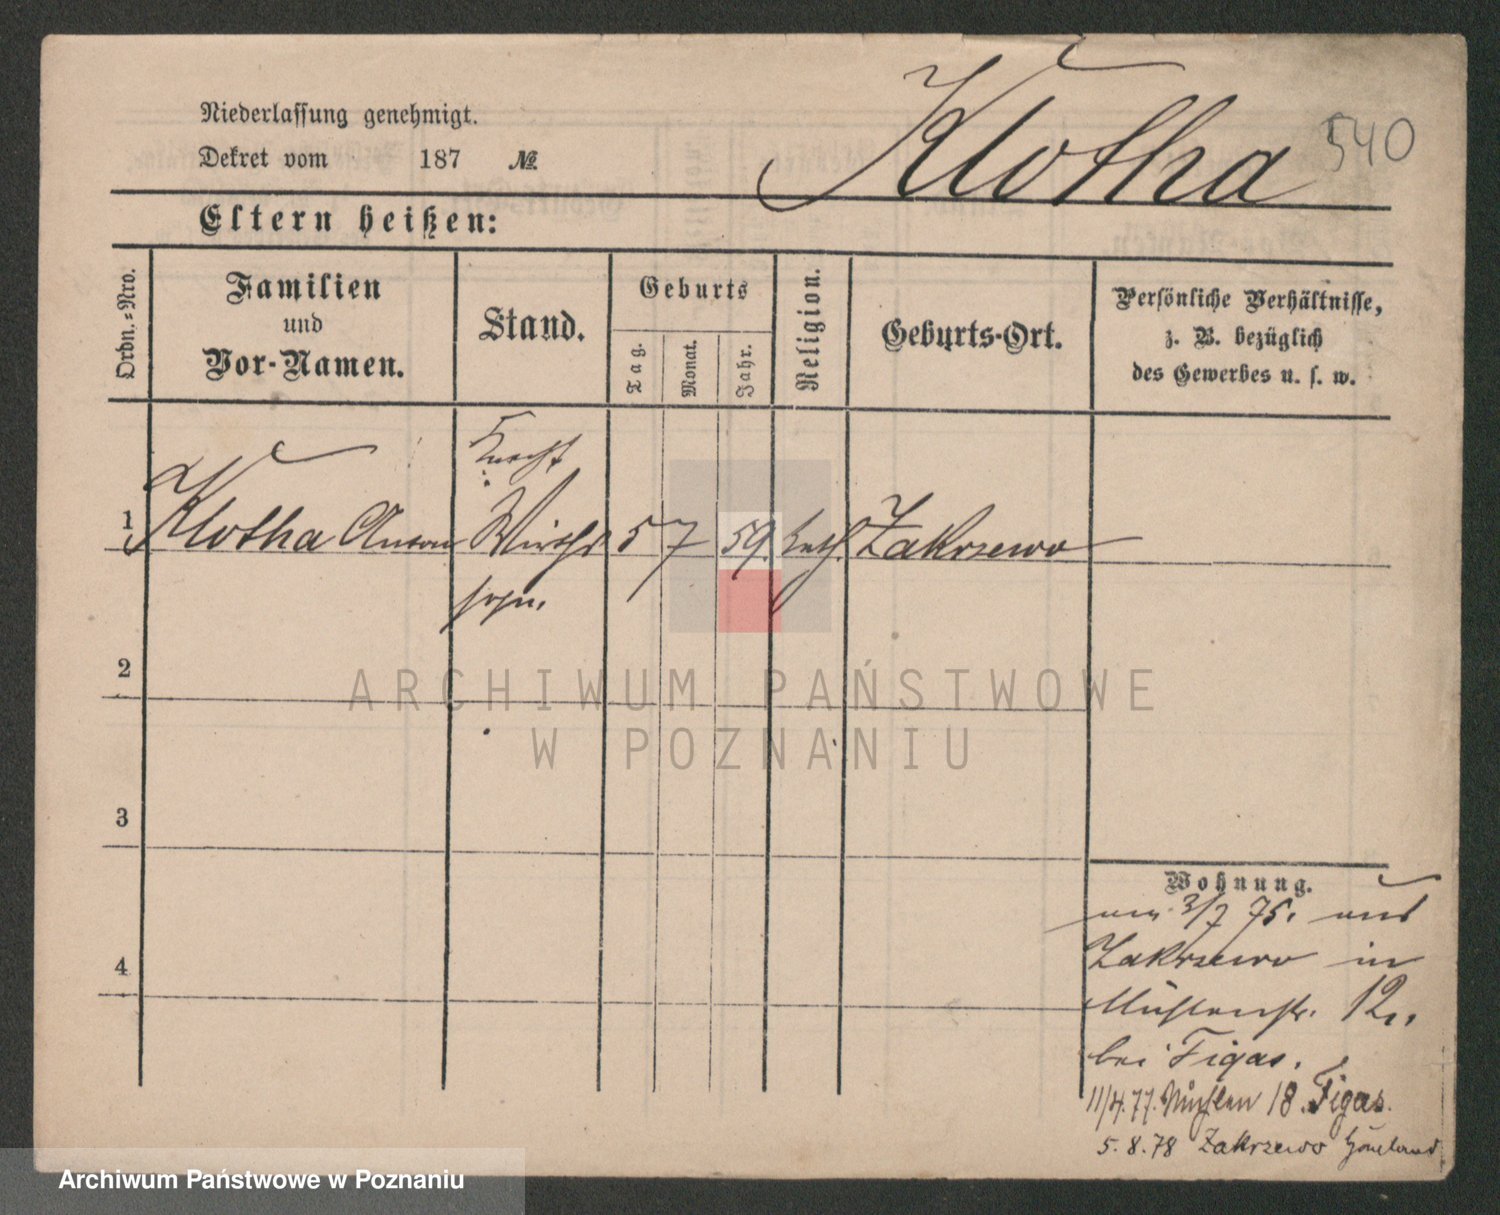 Klotha 540
Niederlassung genehmigt.
Dekret vom 187 №
Eltern heißen:
Ordn.=Nro.
Familien
und
Vor-Namen.
Stand.
Geburts
Tag.
Monat.
Jahr.
Religion.
Geburts-Ort.
Persönliche Verhältnisse,
z. B. bezüglich
des Gewerbes u. s. w.
Knecht
1 Klotha Anton Wirths 5 7 59. kath. Zakrzewo
sohn.
2
3
4
Wohnung.
am 3/7 75. aus
Zakrzewo in
Mühlenstr. 12.
bei Figas.
11/4.77. Mühlen 18. Figas.
5.8.78 Zakrzewo
ARCHIWUM PAŃSTWOWE
W POZNANIU
Archiwum Państwowe w Poznaniu